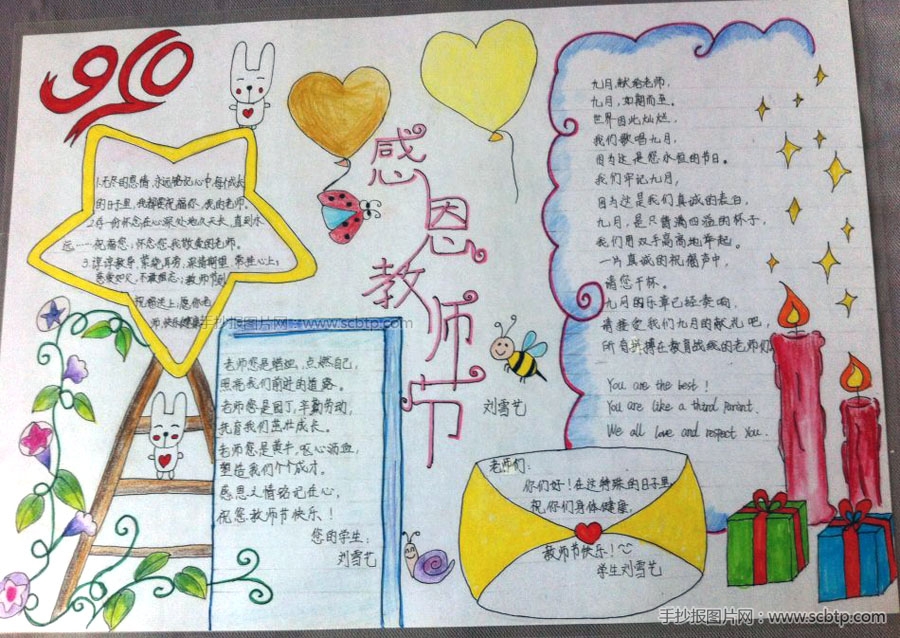 910
感恩教师节
1.无尽的恩情,永远铭记心中.每个成长
的日子里,我都要祝福你,我的老师。
2.将一份怀念在心深处地久天长,直到永
远……祝福您,怀念您,我敬爱的老师。
3.谆谆教导,萦绕耳旁,深情期望,常挂心上;
恩爱如父,不敢相忘;教师节到,
祝福送上,愿你老
师,快乐健康
手抄报图片网:www.scbtp.com
老师您是蜡烛,点燃自己,
照亮我们前时的道路。
老师您是园丁,辛勤劳动,
抚育我们茁壮成长。
老师您是黄牛,呕心沥血,
塑造我们个个成才。
感恩之情铭记在心,
祝您教师节快乐!
您的学生:
刘雪艺
刘雪艺
九月,献给老师,
九月,如期而至。
世界因此灿烂,
我们歌唱九月,
因为这是您永恒的节日。
我们牢记九月,
因为这是我们真诚的表白,
九月,是只情满四溢的杯子,
我们用双手高高地举起。
一片真诚的祝福声中,
请您干杯。
九月的乐章已经奏响,
请接受我们九月的献礼吧,
所有拼搏在教育战线的老师们
You are the best!
You are like a third parent.
We all love and respect you.
老师们:
你们好!在这特殊的日子里,
祝你们身体健康,
教师节快乐!
学生刘雪艺
手抄报图片网:www.scbtp.com